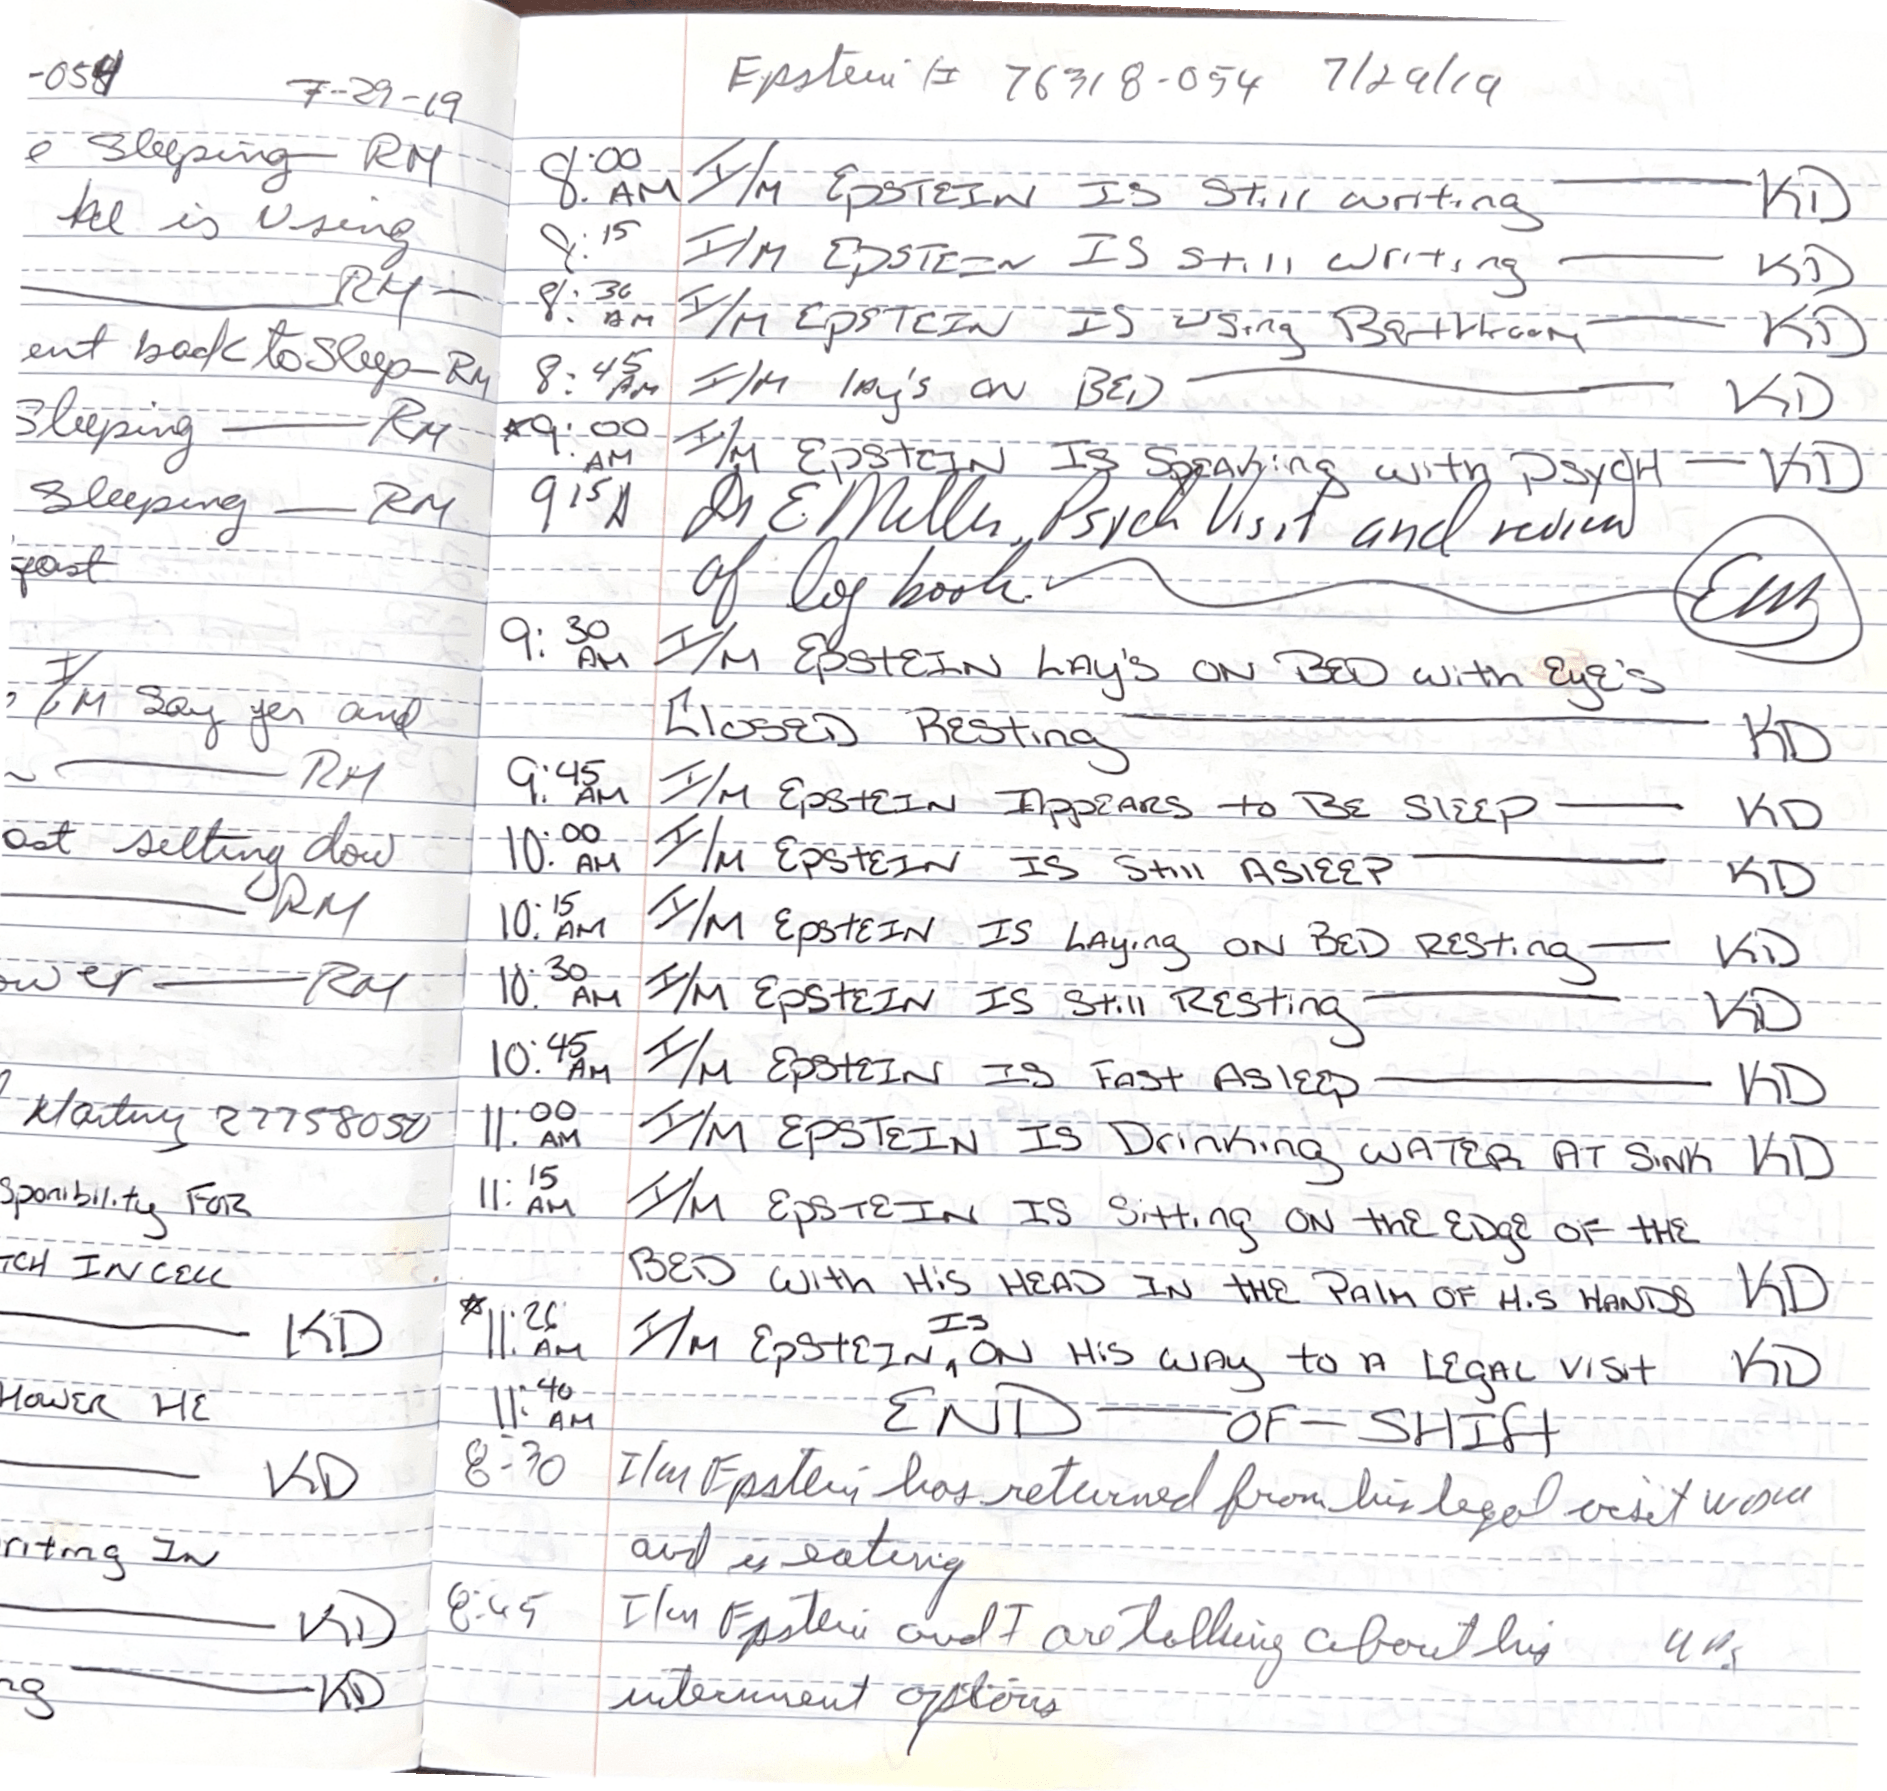 -054 7-29-19
e Sleeping — RM
he is Using
RM —
ent back to Sleep — RM
Sleeping — RM
Sleeping — RM
fast
, I/M say yes and
RM
ast setting dow
RM
ower — RM
27758050
sponibility FOR
TCH IN CELL
KD
HOWER HE
KD
riting IN
KD
ng — KD
Epstein # 76318-054 7/29/19
8:00 AM I/M EPSTEIN IS Still writing — KD
8:15 I/M EPSTEIN IS Still writing — KD
8:30 AM I/M EPSTEIN IS using Bathroom — KD
8:45 AM I/M lay's ON BED — KD
*9:00 AM I/M EPSTEIN IS SPEAKing with PSYCH — KD
915A Dr E. Miller, Psych Visit and review
of log book. EM
9:30 AM I/M EPSTEIN LAY'S ON BED with EyE's
ClOSED RESting — KD
9:45 AM I/M EPSTEIN APPEARS to BE SlEEP — KD
10:00 AM I/M EPSTEIN IS Still ASlEEP — KD
10:15 AM I/M EPSTEIN IS LAying ON BED RESting — KD
10:30 AM I/M EPSTEIN IS Still RESting — KD
10:45 AM I/M EPSTEIN IS FASt ASlEEP — KD
11:00 AM I/M EPSTEIN IS Drinking WATER AT SiNK KD
11:15 AM I/M EPSTEIN IS Sitting ON thE EDgE OF tHE
BED with HiS HEAD IN tHE PAlM OF HiS HANDS KD
*11:26 AM I/M EPSTEIN IS ON HiS WAY to A LEGAL VISIt KD
11:40 AM END — OF — SHIFt
8:30 I/m Epstein has returned from his legal visit
and is eating
8:45 I/m Epstein and I are talking about his
internment options